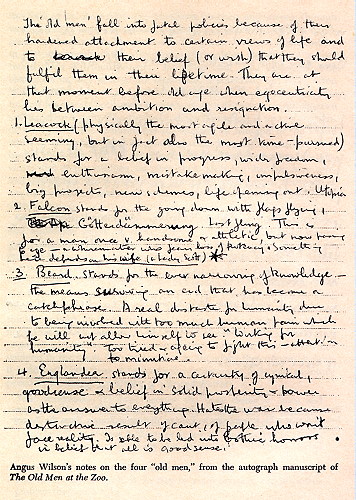 The old men fall into fatal policies because of their
hardened attachment to certain views of life and
to their belief (or wish) that they should
fulfil them in their lifetime. They are at
that moment before old age when egocentricity
lies between ambition and resignation.
1. Leacock (physically the most agile and active
seeming, but in fact also the most time-pursued)
stands for a belief in progress, wide freedom,
enthusiasm, mistake making, impulsiveness,
big projects, new schemes, life opening out. Utopia
2. Falcon stands for the going down with flags flying,
Götterdämmerung last fling. This is
for a man once v. handsome & athletic but now
3. Beard. stands for the ever narrowing of knowledge —
the means serving an end that has become a
catchphrase. A real distaste for humanity due
to being involved with too much human pain which
he will not allow himself to see is linking for
humanity. Too tired & ageing to fight this — attention
to minutiae.
4. Englander stands for a certainty of cynical,
goodsense & belief in solid prosperity & power
as the answer to everything. Hates the war because
destructive result of cant, of people who won't
face reality. Is able to be led into horrors
in belief that all is goodsense.
Angus Wilson's notes on the four "old men," from the autograph manuscript of
The Old Men at the Zoo.